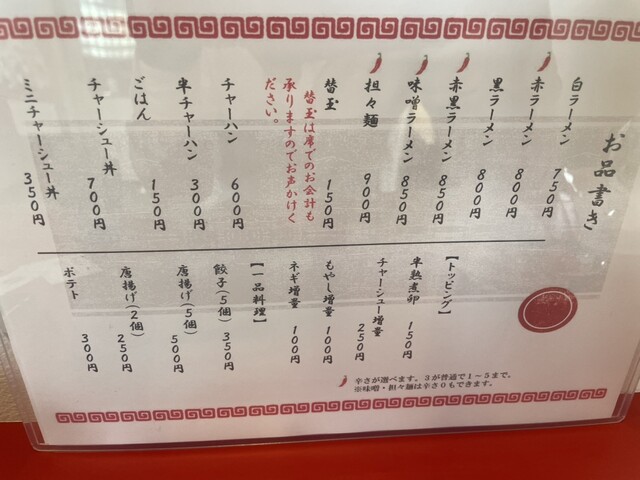 お品書き
白ラーメン 750円
赤ラーメン 800円
黒ラーメン 800円
赤黒ラーメン 850円
味噌ラーメン 850円
担々麺 900円
替玉 150円
替玉は席でのお会計も
承りますのでお声かけく
ださい。
チャーハン 600円
半チャーハン 300円
ごはん 150円
チャーシュー丼 700円
ミニチャーシュー丼 350円
【トッピング】
半熟煮卵 150円
チャーシュー増量 250円
もやし増量 100円
ネギ増量 100円
【一品料理】
餃子(5個) 350円
唐揚げ(5個) 500円
唐揚げ(2個) 250円
ポテト 300円
辛さが選べます。3が普通で1~5まで。
※味噌・担々麺は辛さ0もできます。